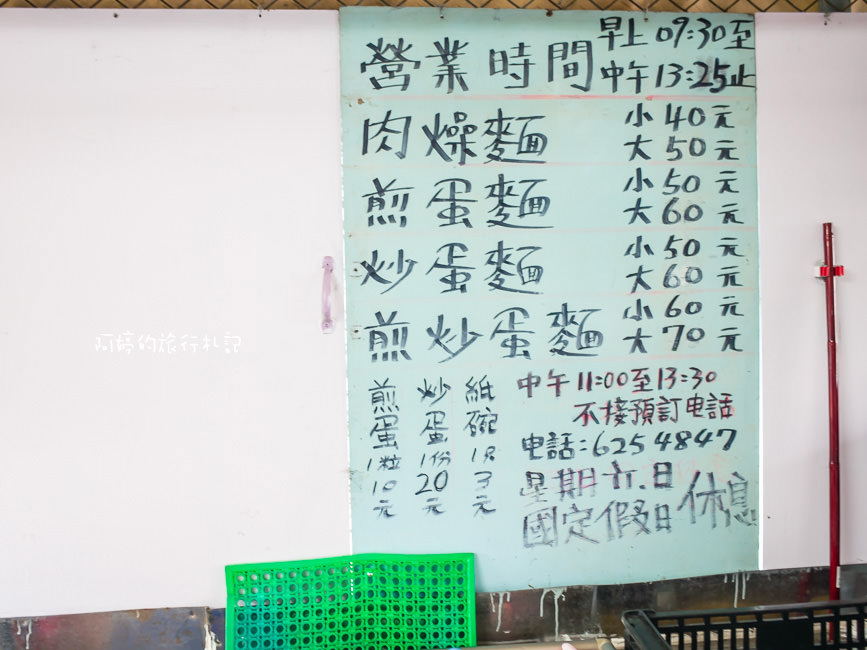 營業時間 早上09:30至
中午13:25止
肉燥麵 小40元
大50元
煎蛋麵 小50元
大60元
炒蛋麵 小50元
大60元
煎炒蛋麵 小60元
大70元
煎蛋1粒10元
炒蛋1份20元
紙碗1只3元
中午11:00至13:30
不接預訂电話
电話:6254847
星期六.日
國定假日休息
阿婷的旅行札記